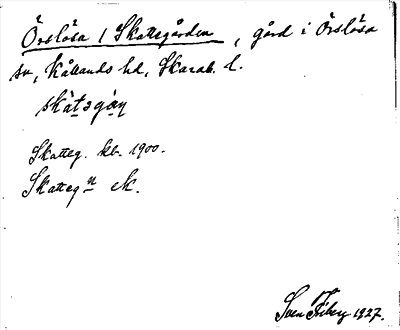 Örslösa 1 Skattegården, gård i Örslösa
sn, Kållands hd, Skarab. l.
skàtsgàn
Skatteg. kb. 1900.
Skatteg n ek.
Sven Fiby 1927.